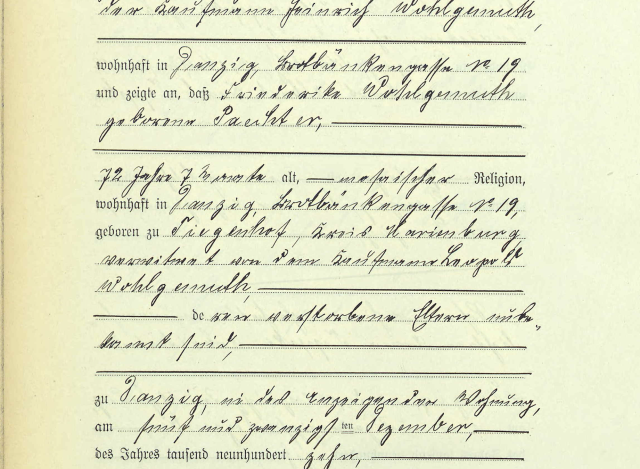 der Kaufmann Heinrich Wohlgemuth,
wohnhaft in Danzig, Brotbänkengasse No 19
und zeigte an, daß Friederike Wohlgemuth
geborene Paechter,
72 Jahre 7 Monate alt, mosaischer Religion,
wohnhaft in Danzig, Brotbänkengasse No 19,
geboren zu Tiegenhof, Kreis Marienburg,
verwitwet von dem Kaufmann Leopold
Wohlgemuth,
deren verstorbene Eltern unbe-
kannt sind,
zu Danzig, in des Anzeigenden Wohnung,
am fünf und zwanzigsten Dezember,
des Jahres tausend neunhundert zehn,